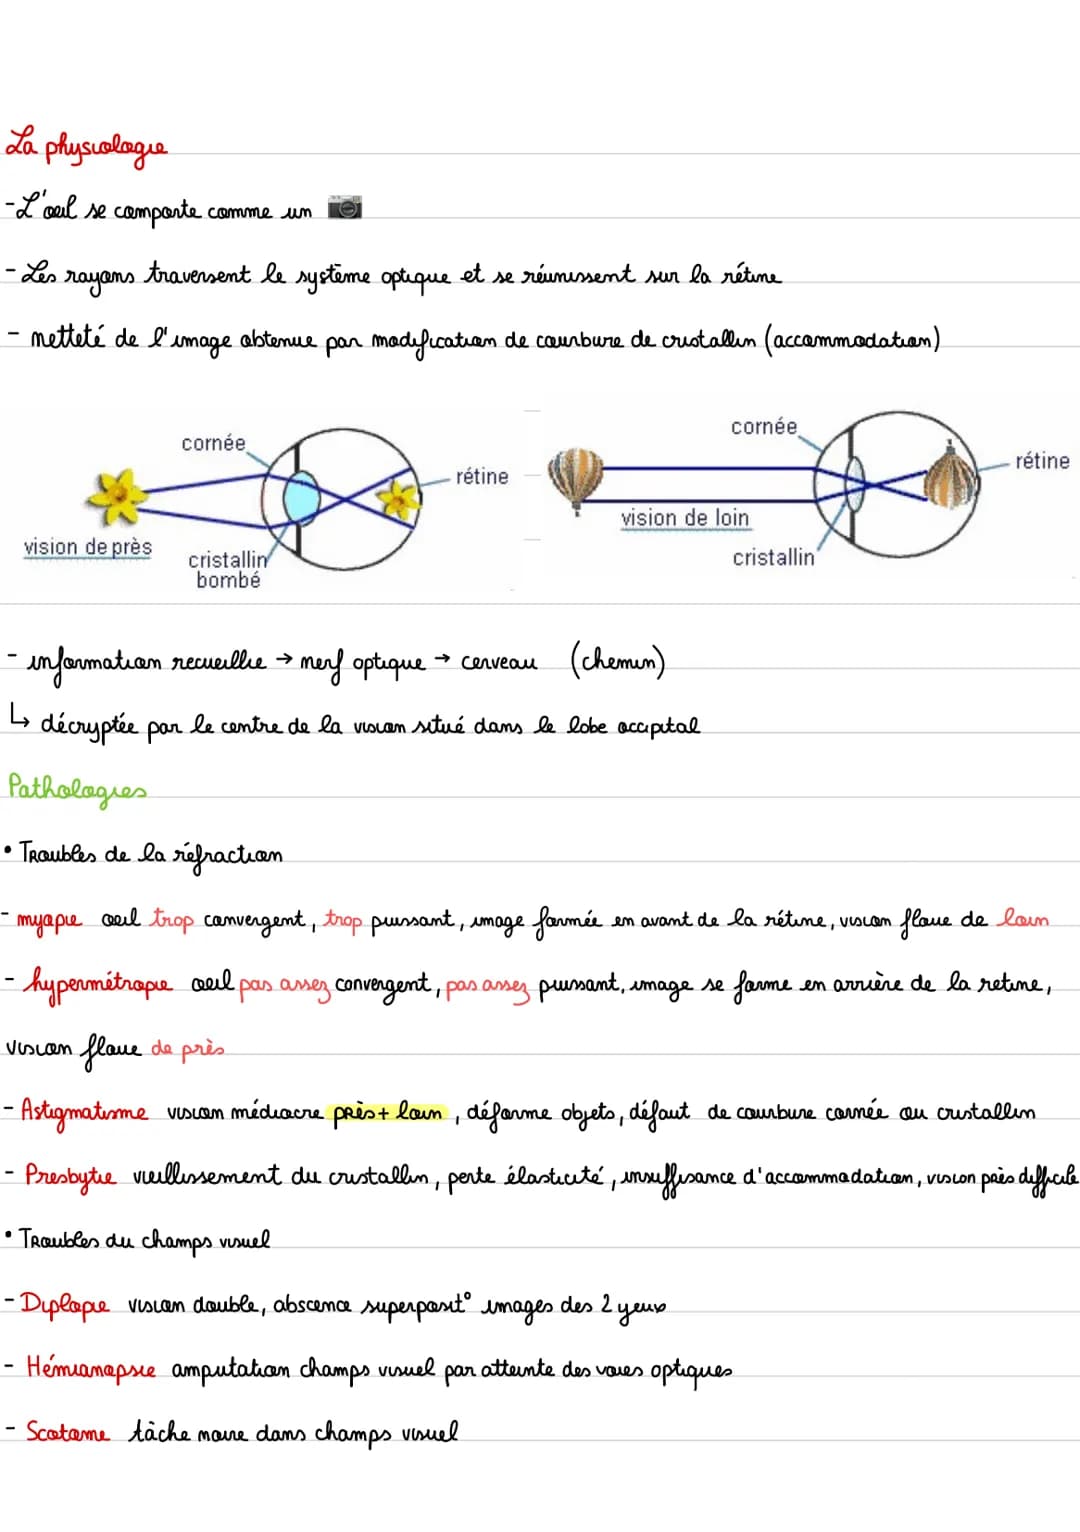 La physiologie
- L'oeil se comporte comme un
- Les rayons traversent le système optique et se réunissent sur la rétine
- netteté de l'image obtenue par modification de courbure de cristallin (accommodation)
cornée
rétine
vision de près
cristallin
bombé
cornée
rétine
vision de loin
cristallin
- information recueillie → nerf optique → cerveau (chemin)
↳ décryptée par le centre de la vision situé dans le lobe occipital
Pathologies
• Troubles de la réfraction
- myopie oeil trop convergent, trop puissant, image formée en avant de la rétine, vision floue de loin
- hypermétropie oeil pas assez convergent, pas assez puissant, image se forme en arrière de la retine,
vision floue de près
- Astigmatisme vision médiocre près + loin, déforme objets, défaut de courbure cornée ou cristallin
- Presbytie vieillissement du cristallin, perte élasticité, insuffisance d'accommodation, vision près difficile
• Troubles du champs visuel
- Diplopie vision double, abscence superposit° images des 2 yeux
- Hémianopsie amputation champs visuel par atteinte des voies optiques
- Scotome tâche noire dans champs visuel